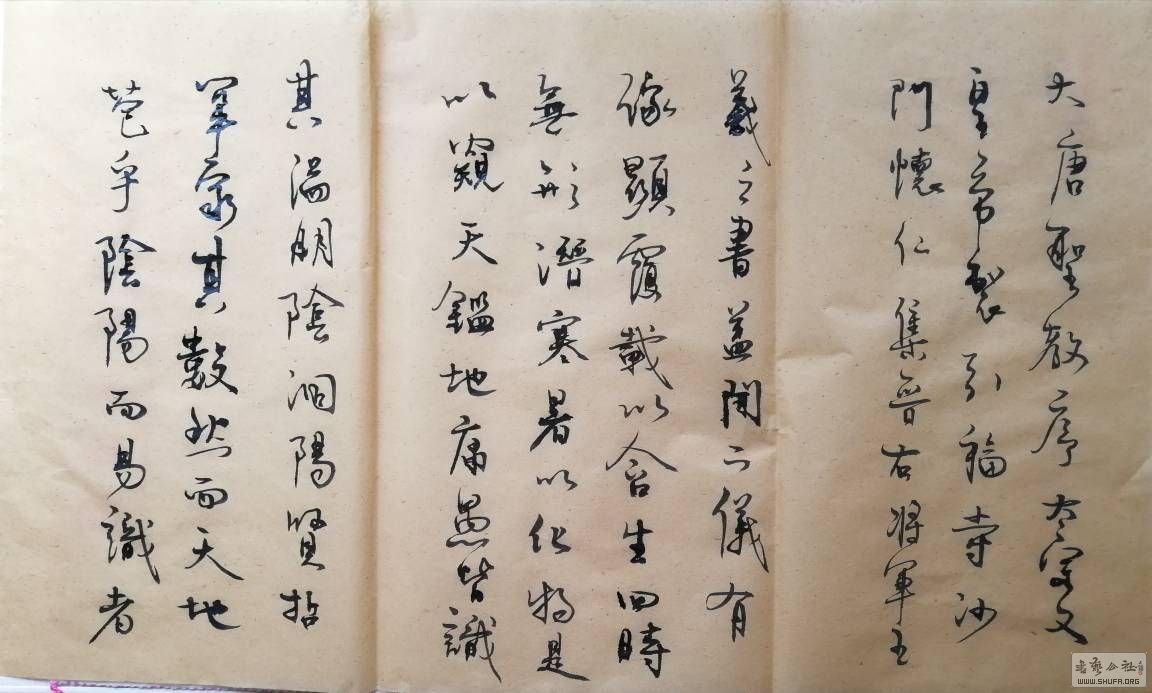 大唐聖教序太宗文
皇帝製弘福寺沙
門懷仁集晉右將軍王
羲之書蓋聞二儀有
像顯覆載以含生四時
無形潛寒暑以化物是
以窺天鑑地庸愚皆識
其端明陰洞陽賢哲
罕窮其數然而天地
苞乎陰陽而易識者
書藝公社
WWW.SHUFA.ORG